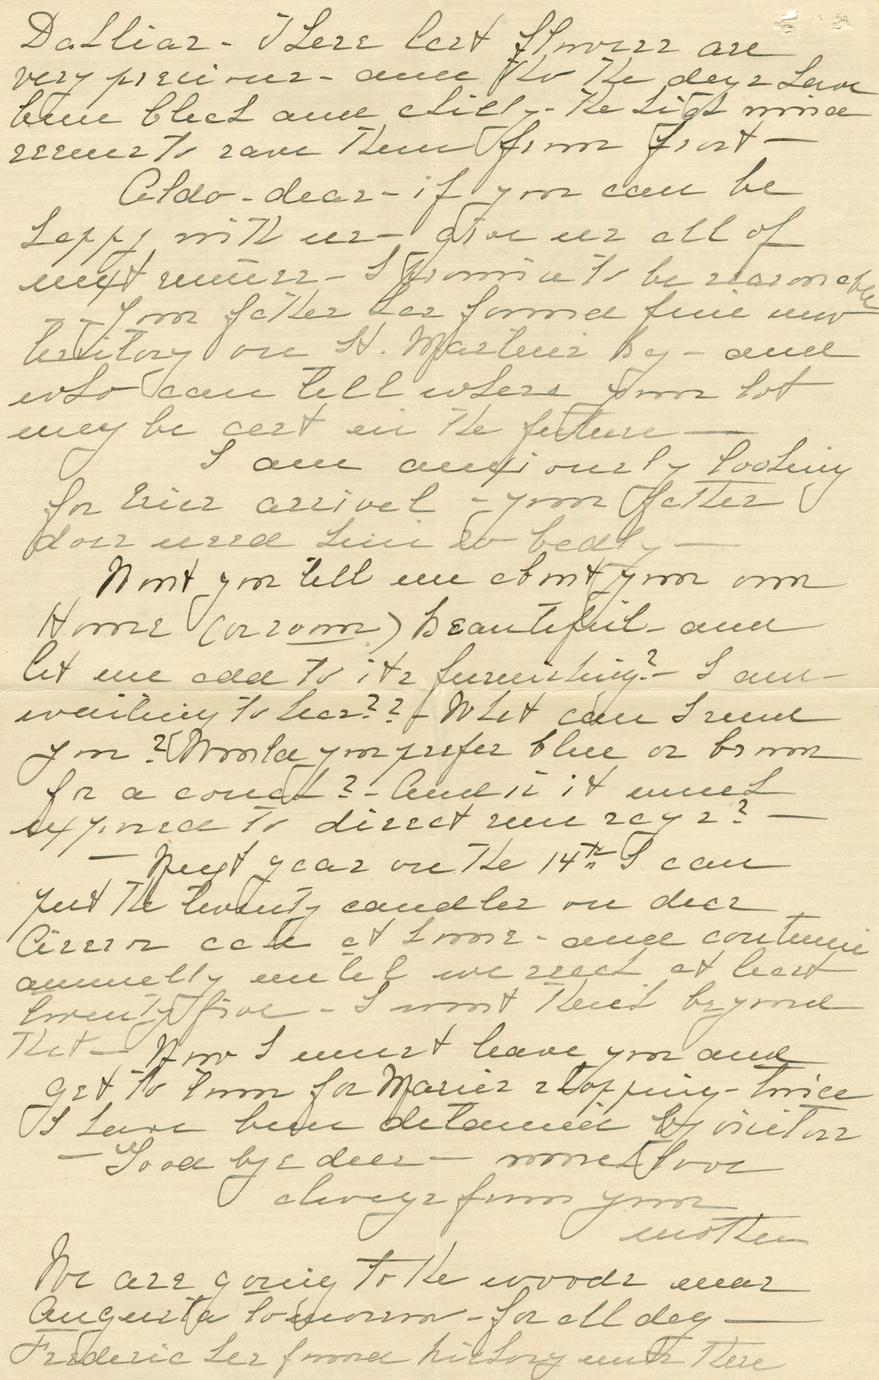 Dahlias - These last flowers are
very precious - and tho the days have
been bleak and chilly - the high wind
seems to save them from frost -
Aldo - dear - if you can be
happy with us - give us all of
next summer - I promise to be reasonable
Your father has found fine new
territory on St. Martins by - and
who can tell where your lot
may be cast in the future -
I am anxiously looking
for Erics arrival - your father
does need him so badly -
Wont you tell me about your own
Home (or room) Beautiful - and
let me add to its furnishing? - I am -
waiting to hear?? - What can I send
you? Would you prefer blue or brown
for a couch? - And is it much
exposed to direct sun rays? -
- Next year on the 14th I can
put the twenty candles on dear
cake at home - and continue
annually until we reach at least
twenty five - I wont think beyond
that - Now I must leave you and
get to town for Maries shopping - twice
I have been detained by visitors
- Good bye dear - much love
always from your
mother
We are going to the woods near
Augusta tomorrow - for all day -
Frederic has found hickory nuts there